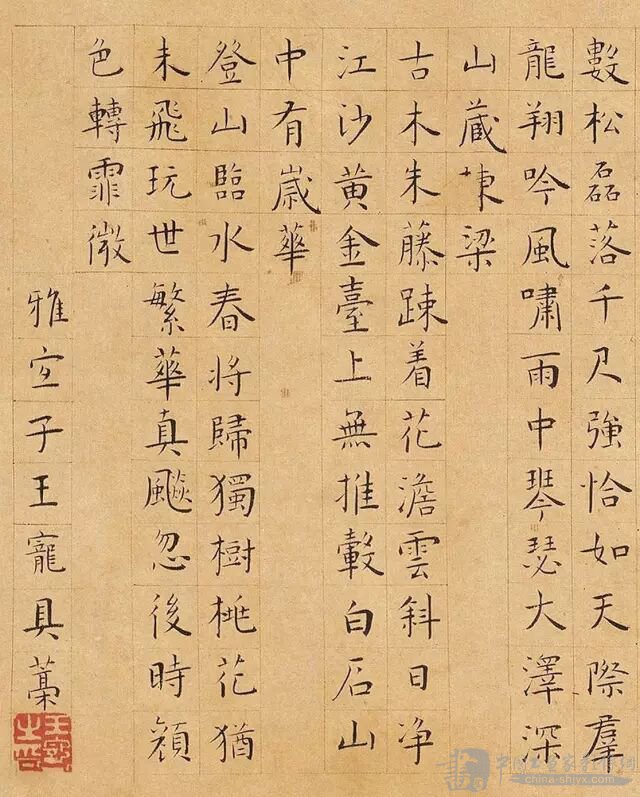 數松磊落千尺強恰如天際羣
龍翔吟風嘯雨中琴瑟大澤深
山藏棟梁
古木朱藤踈着花澹雲斜日净
江沙黃金臺上無推轂白石山
中有歲華
登山臨水春將歸獨樹桃花猶
未飛玩世繁華真飈忽後時顏
色轉霏微
雅宜子王寵具藁
王寵之印
china-shiyx.com